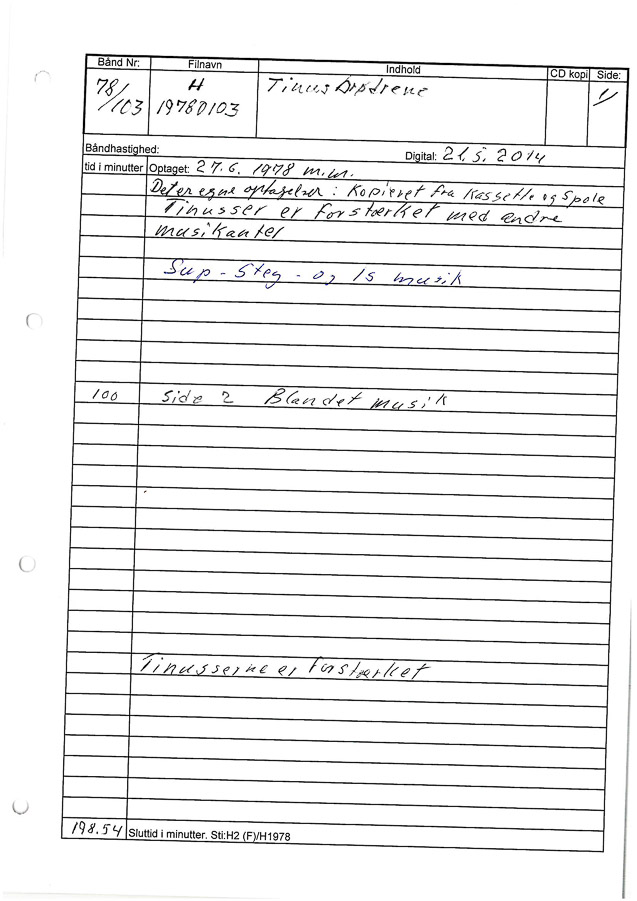 Bånd Nr: Filnavn Indhold CD kopi Side:
78/103 H 19780103 Tinusbrødrene 1/
Båndhastighed: Digital: 21.5. 2014
tid i minutter Optaget: 27.6. 1978 m.m.
Det er egne optagelser: Kopieret fra Kassette og Spole
Tinusser er forstærket med andre
musikanter
Sup - Steg - og Is musik
100 Side 2 Blandet musik
Tinusserne er forstærket
198.54 Sluttid i minutter. Sti:H2 (F)/H1978